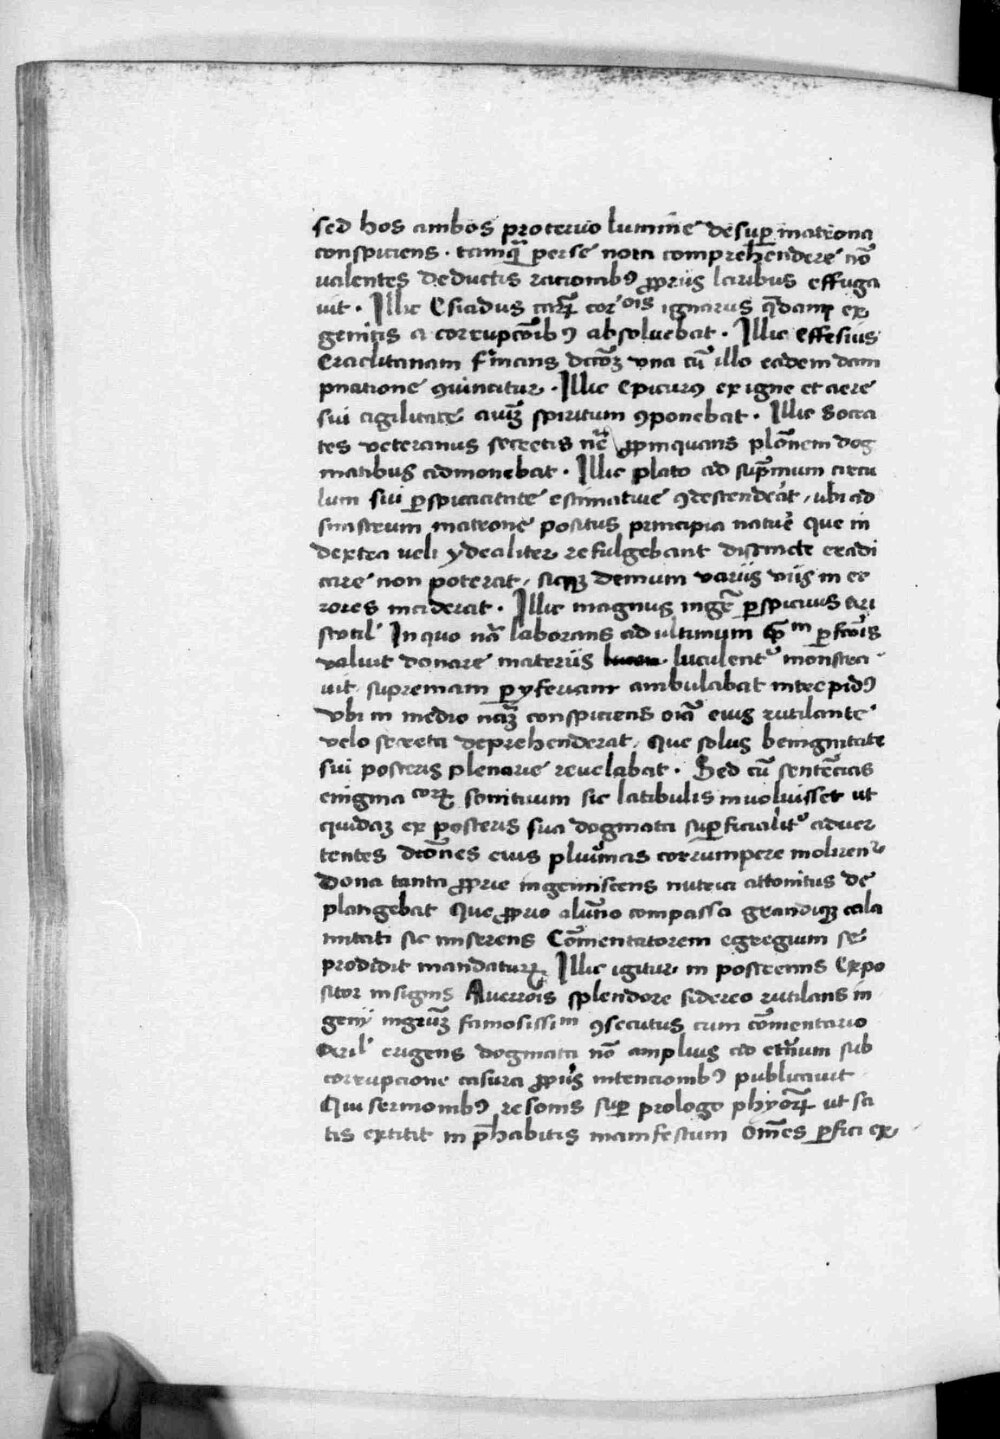 sed hos ambos proteruo lumine desup matrona
conspiciens · tamq̃ perse nota comprehendere nõ
ualentes deductis racionibꝰ ꝓpriis laribus effuga
uit · Illic Esiadus ignarus q̃dam ex
genitis a corrupcõibꝰ absoluebat · Illic effesius
Eraclitanam firmans una cũ illo eadem dam
pnatione ꝯuincitur · Illic Epicurꝰ ex igne et aere
sui agilitate spiritum ꝯponebat · Illic Socra
tes ueteranus secretis ꝓpinquans dog
matibus admonebat · Illic plato ad sup̃mum circu
lum sui ꝑspicacitate estimatiue ꝯdescenderat, ubi ad
sinistrum matrone positus principia nature que in
dextra ueli ydealiter refulgebant distincte eradi
care non poterat, sicqꝫ demum variis viis in er
rores inciderat · Illic magnus ꝑspicuus Ari
stotil' In quo nã laborans ad ultimum
valuit donare materiis · luculent᷒ monstra
uit supremam ambulabat intrepidꝰ
Vbi in medio conspiciens oĩa eius rutilante
velo secreta deprehenderat, Que solus benignitate
sui posteris plenarie reuelabat · Sed cũ sentẽcias
enigma corꝝ sonituum sic latibulis inuoluisset ut
quidaꝫ ex posteris sua dogmata suꝑficialit᷒ aduer
tentes eius plurimas corrumpere moliren᷒
Dona tanta ꝓprie ingemiscens attonitus de
plangebat Que ꝓprio alũno compassa grandiqꝫ cala
mitati sic miserens Cõmentatorem egregium se
prodidit mandaturꝝ Illic igitur in postremis Expo
sitor insignis Auerrois splendore sidereo rutilans in
genij famosissim ꝯsecutus cum cõmentario
Aril' erigens dogmata nõ amplius ad sub
corrupcione casura ꝓpriis intencionibꝰ publicauit
Qui sermonibꝰ resonis suꝑ prologo phycorꝝ ut sa
tis extitit in p̃habitis manifestum Om̃es ꝑfici ex